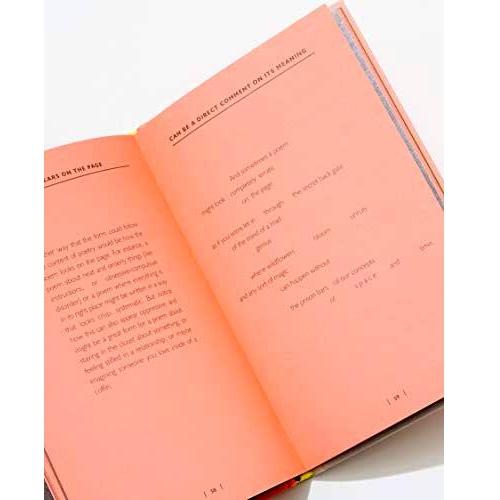 EARS ON THE PAGE
ther way that the form could follow
content of poetry would be how the
oem looks on the page. For instance, a
poem about neat and orderly things (like
instructions, or obsessive-compulsive
disorder) or a poem where everything is
in its right place might be written in a way
that looks crisp, systematic. But notice
how this can also appear oppressive and
might be a great form for a poem about
staying in the closet about something, or
feeling stifled in a relationship, or maybe
imagining someone you love inside of a
coffin.
| 58 |
CAN BE A DIRECT COMMENT ON ITS MEANING
And sometimes a poem
might look completely erratic
on the page
as if you were let in through the secret back gate
of the mind of a mad unruly
genius
where wildflowers bloom
and any sort of magic can happen without
the prison bars of our concepts
of space and time.
| 59 |